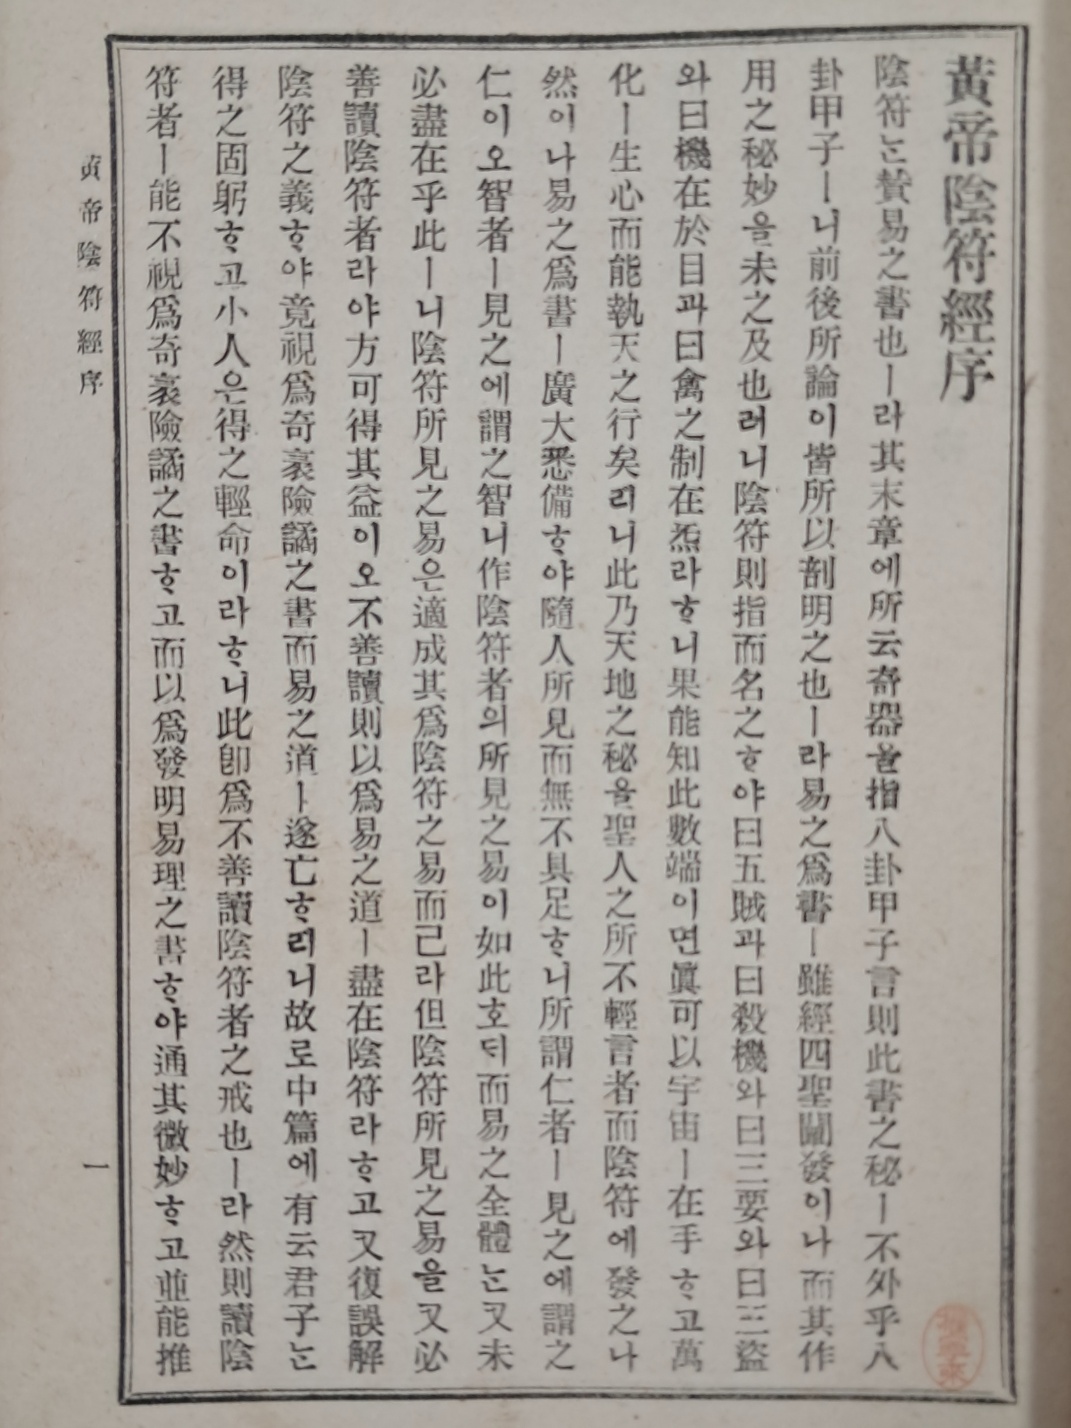 黃帝陰符經序
陰符ᄂᆞᆫ贊易之書也ㅣ라其末章에所云奇器ᄅᆞᆯ指八卦甲子言則此書之秘ㅣ不外乎八
卦甲子ㅣ니前後所論이皆所以剖明之也ㅣ라易之爲書ㅣ雖經四聖闡發이나而其作
用之秘妙을未之及也러니陰符則指而名之ᄒᆞ야曰五賊과曰殺機와曰三要와曰三盜
와曰機在於目과曰禽之制在炁라ᄒᆞ니果能知此數端이면眞可以宇宙ㅣ在手ᄒᆞ고萬
化ㅣ生心而能執天之行矣리니此乃天地之秘을聖人之所不輕言者而陰符에發之나
然이나易之爲書ㅣ廣大悉備ᄒᆞ야隨人所見而無不具足ᄒᆞ니所謂仁者ㅣ見之에謂之
仁이오智者ㅣ見之에謂之智니作陰符者의所見之易이如此호ᄃᆡ而易之全體ᄂᆞᆫ又未
必盡在乎此ㅣ니陰符所見之易은適成其爲陰符之易而已라但陰符所見之易을又必
善讀陰符者라야方可得其益이오不善讀則以爲易之道ㅣ盡在陰符라ᄒᆞ고又復誤解
陰符之義ᄒᆞ야竟視爲奇袤險譎之書而易之道ㅏ遂亡ᄒᆞ리니故로中篇에有云君子ᄂᆞᆫ
得之固躬ᄒᆞ고小人은得之輕命이라ᄒᆞ니此卽爲不善讀陰符者之戒也ㅣ라然則讀陰
符者ㅣ能不視爲奇袤險譎之書ᄒᆞ고而以爲發明易理之書ᄒᆞ야通其微妙ᄒᆞ고並能推
黃帝陰符經序
一